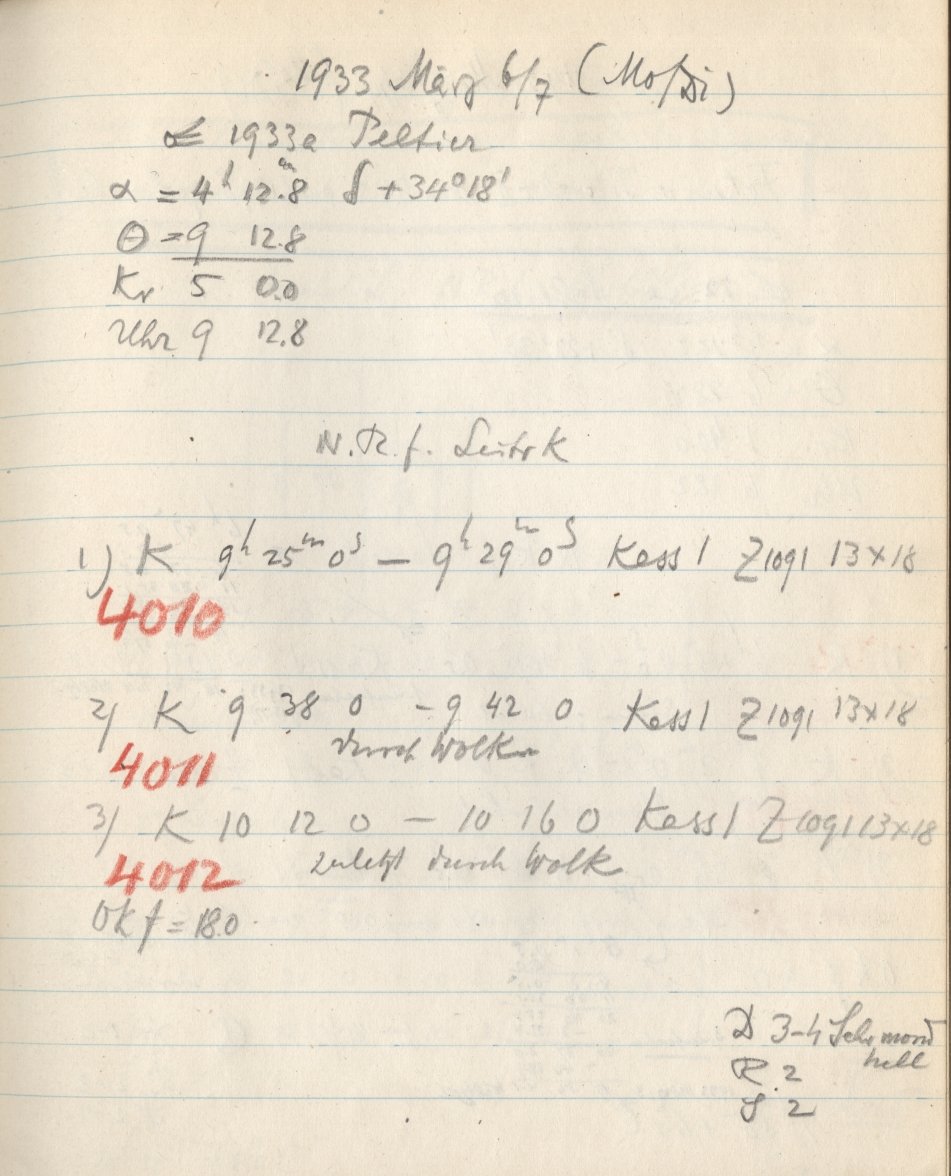 1933 März 6/7 (Mo/Di)
☄ 1933a Peltier
α = 4h 12m.8 δ +34°18'
Θ = 9 12.8
Kr 5 0.0
Uhr 9 12.8
N. R. f.
1) K 9h 25m 0s – 9h 29m 0s Kass 1 Zlog1 13×18
4010
2) K 9 38 0 – 9 42 0 Kass 1 Zlog1 13×18
durch Wolken
4011
3) K 10 12 0 – 10 16 0 Kass 1 Zlog1 13×18
4012 zuletzt durch Wolk
Okf = 18.0
D 3-4 Sehr mond
hell
R. 2
S 2